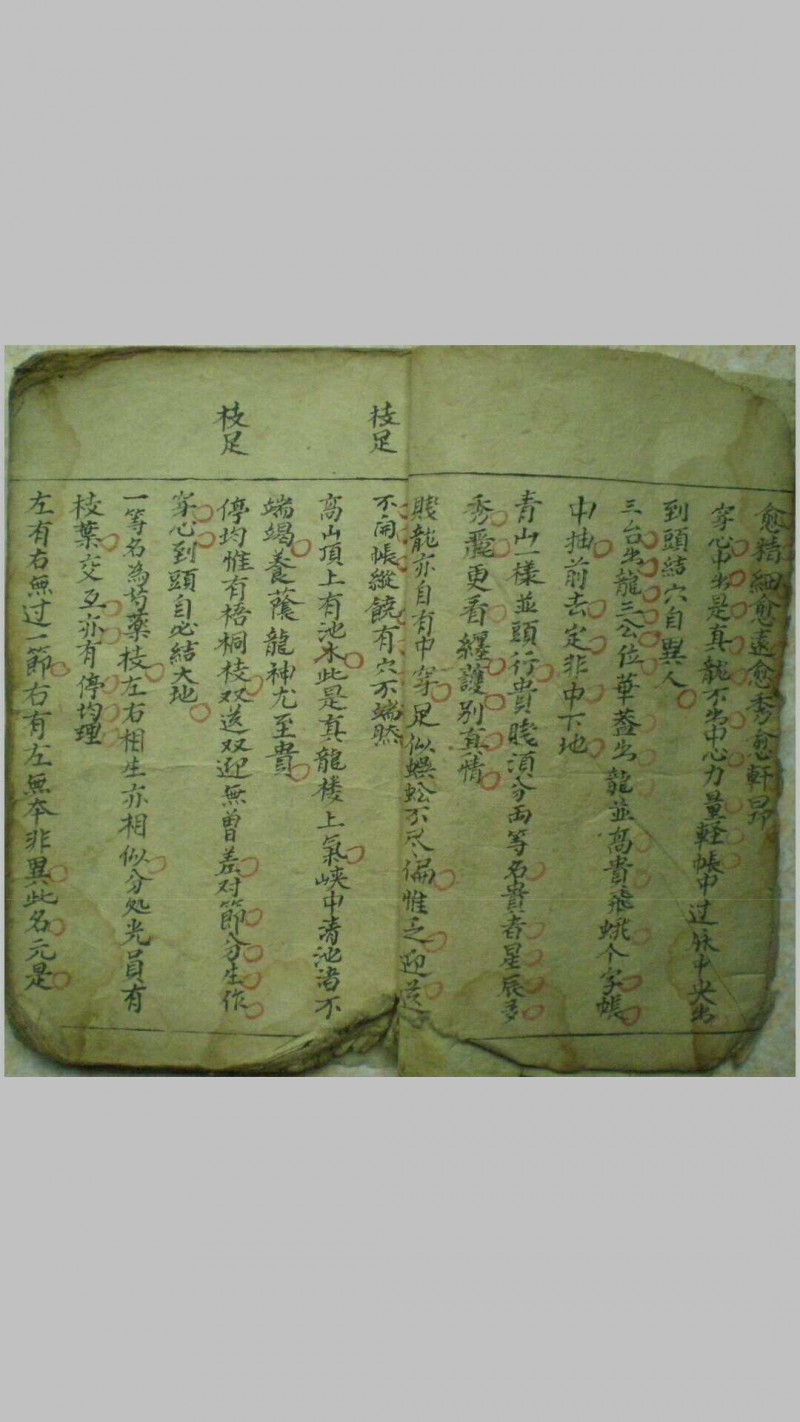 愈精細愈遠愈秀愈軒昂
穿心中出是真龍不出中心力量軽帳中过脉中央出
到頭結穴自異人
三台出龍三公位華蓋出龍並高貴飛蛾个字帳
中抽前去定非中下地
青山一樣並頭行貴賤須分両等名貴者星辰多
秀麗更看纒護別真情
賤龍亦自有中穿足似蜈蚣不尽偏惟乏迎送
不開帳縱饒有穴不端然
枝足
高山頂上有池水此是真龍楼上氣峡中清池渚不
端竭養蔭龍神尤至貴
枝足
停均惟有梧桐枝双送双迎無曽差对節分生作
穿心到頭自必結大地
一等名為芍藥枝左右相生亦相似分処光員有
枝葉交互亦有停均理
左有右無过一節右有左無本非異此名元是